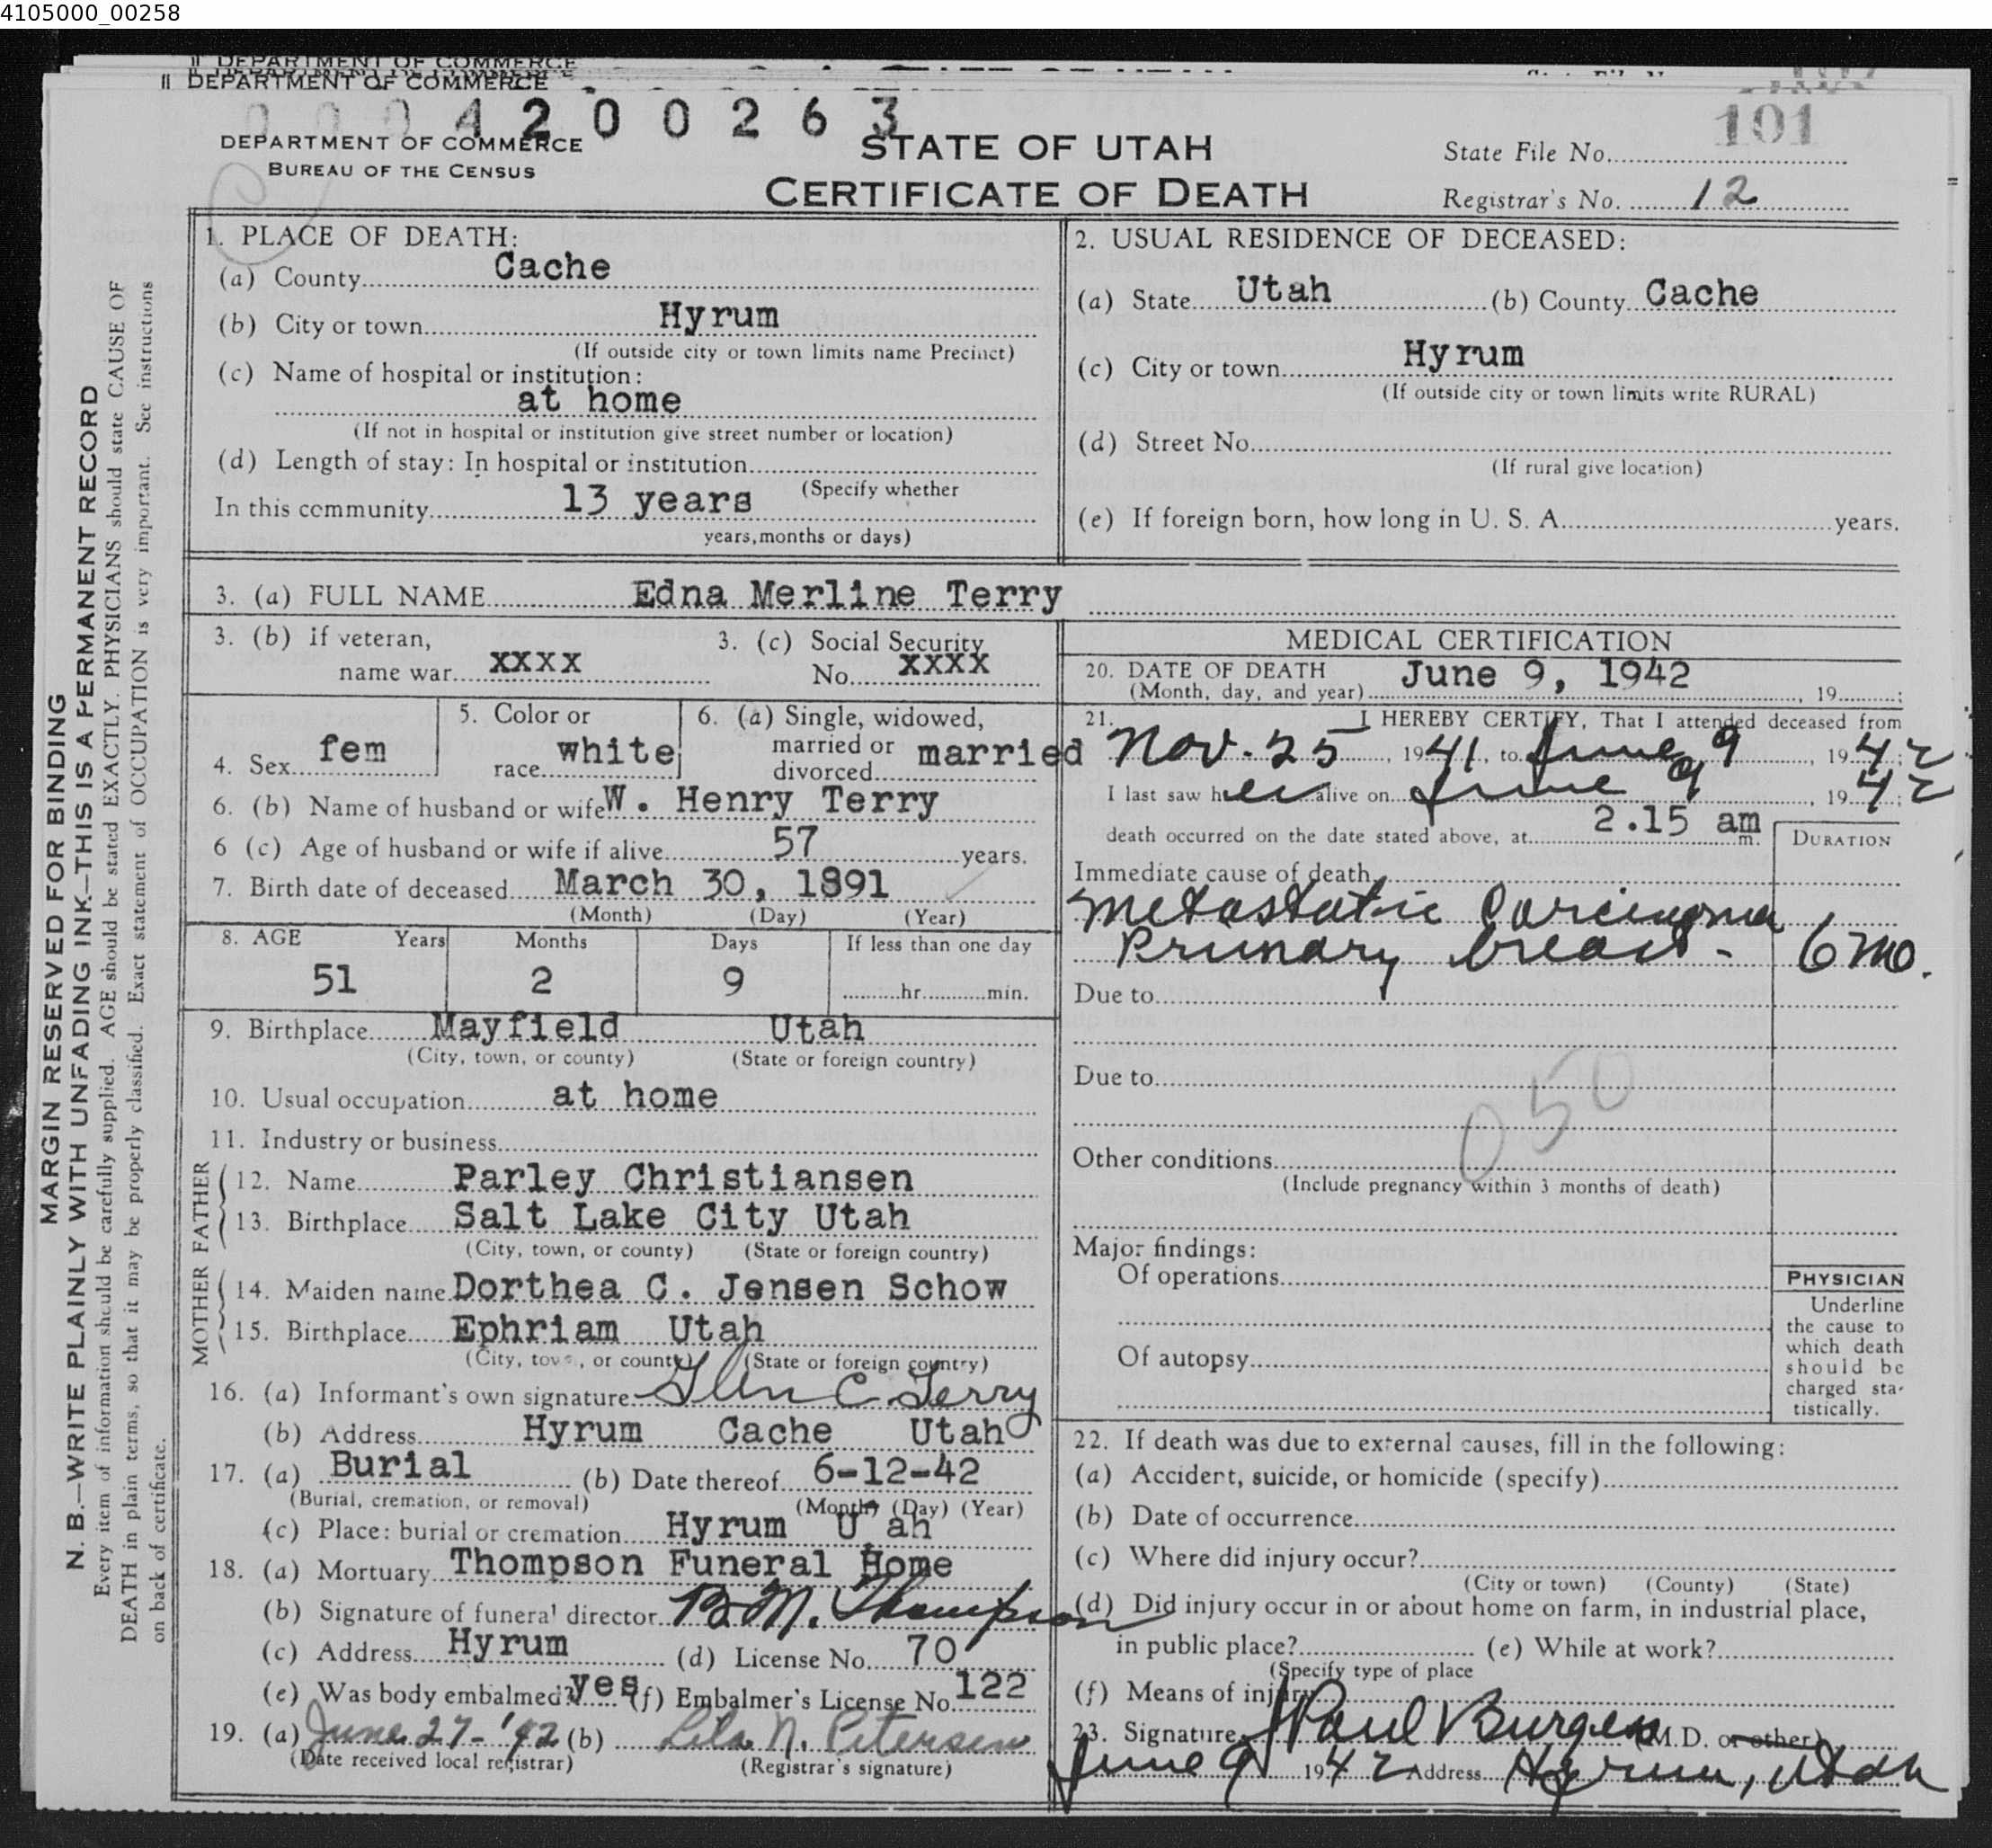 4105000_00258
DEPARTMENT OF COMMERCE
DEPARTMENT OF COMMERCE
0004200263
101
DEPARTMENT OF COMMERCE
BUREAU OF THE CENSUS
STATE OF UTAH
CERTIFICATE OF DEATH
State File No.
Registrar's No. 12
MARGIN RESERVED FOR BINDING
N. B.—WRITE PLAINLY WITH UNFADING INK—THIS IS A PERMANENT RECORD
Every item of information should be carefully supplied. AGE should be stated EXACTLY. PHYSICIANS should state CAUSE OF
DEATH in plain terms, so that it may be properly classified. Exact statement of OCCUPATION is very important. See instructions
on back of certificate.
1. PLACE OF DEATH:
(a) County Cache
(b) City or town Hyrum
(If outside city or town limits name Precinct)
(c) Name of hospital or institution:
at home
(If not in hospital or institution give street number or location)
(d) Length of stay: In hospital or institution
(Specify whether
In this community 13 years
years, months or days)
2. USUAL RESIDENCE OF DECEASED:
(a) State Utah (b) County Cache
(c) City or town Hyrum
(If outside city or town limits write RURAL)
(d) Street No.
(If rural give location)
(e) If foreign born, how long in U. S. A. years.
3. (a) FULL NAME Edna Merline Terry
3. (b) if veteran,
name war xxxx
3. (c) Social Security
No. xxxx
4. Sex fem
5. Color or
race white
6. (a) Single, widowed,
married or
divorced married
6. (b) Name of husband or wife W. Henry Terry
6 (c) Age of husband or wife if alive 57 years.
7. Birth date of deceased March 30, 1891
(Month) (Day) (Year)
8. AGE Years Months Days If less than one day
51 2 9 hr. min.
9. Birthplace Mayfield Utah
(City, town, or county) (State or foreign country)
10. Usual occupation at home
11. Industry or business
FATHER
12. Name Parley Christiansen
13. Birthplace Salt Lake City Utah
(City, town, or county) (State or foreign country)
MOTHER
14. Maiden name Dorthea C. Jensen Schow
15. Birthplace Ephriam Utah
(City, town, or county) (State or foreign country)
16. (a) Informant's own signature Glen C. Terry
(b) Address Hyrum Cache Utah
17. (a) Burial (b) Date thereof 6-12-42
(Burial, cremation, or removal) (Month) (Day) (Year)
(c) Place: burial or cremation Hyrum U ah
18. (a) Mortuary Thompson Funeral Home
(b) Signature of funeral director B. M. Thompson
(c) Address Hyrum (d) License No. 70
(e) Was body embalmed? yes (f) Embalmer's License No. 122
19. (a) June 27-'42 (b) Lila N. Petersen
(Date received local registrar) (Registrar's signature)
MEDICAL CERTIFICATION
20. DATE OF DEATH June 9, 1942
(Month, day, and year) , 19 ;
21. I HEREBY CERTIFY, That I attended deceased from
Nov. 25, 1941, to June 9, 1942;
I last saw her alive on June 9, 1942;
death occurred on the date stated above, at 2.15 am m.
DURATION
Immediate cause of death
Metastatic Carcinoma
Primary breast - 6 mo.
Due to
Due to
050
Other conditions
(Include pregnancy within 3 months of death)
Major findings:
Of operations
Of autopsy
PHYSICIAN
Underline
the cause to
which death
should be
charged sta-
tistically.
22. If death was due to external causes, fill in the following:
(a) Accident, suicide, or homicide (specify)
(b) Date of occurrence
(c) Where did injury occur?
(City or town) (County) (State)
(d) Did injury occur in or about home on farm, in industrial place,
in public place? (e) While at work?
(Specify type of place
(f) Means of injury
23. Signature J Paul Burgess (M.D. or other)
June 9 1942 Address Hyrum, Utah